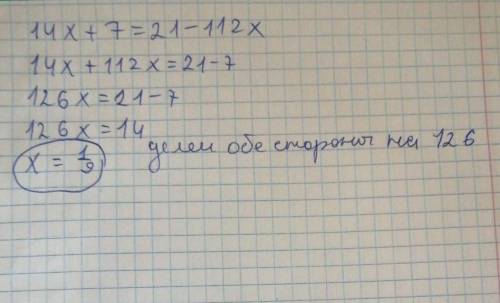 14x + 7 = 21 - 112x
14x + 112x = 21 - 7
126x = 21 - 7
126x = 14
x = 1/9 делем обе стороны на 126